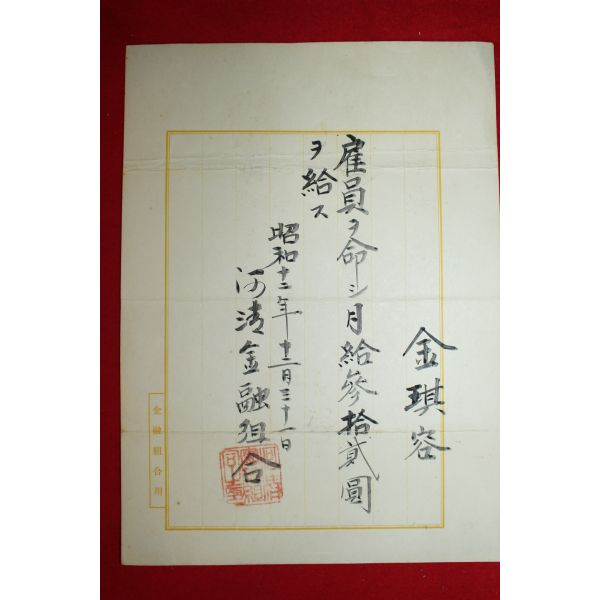 金琪容
雇員ヲ命シ月給參拾貳圓
ヲ給ス
昭和十二年十二月三十一日
河清金融組合
金融組合用